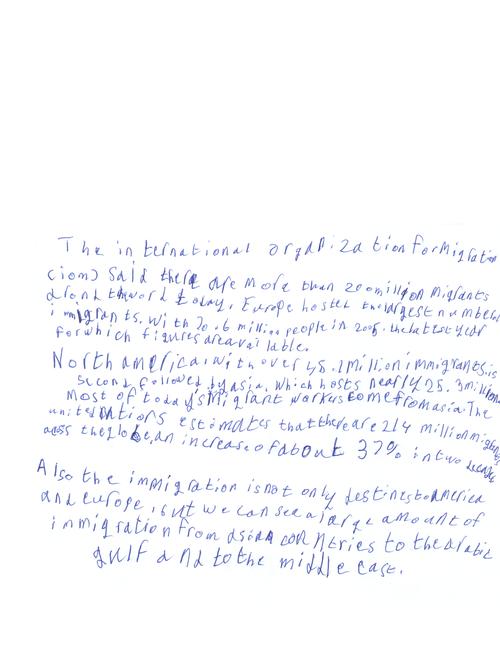 The international organization for Migration
(iom) Said there are more than 200 million Migrants
around the world today. Europe hosted the largest number of
immigrants, with 70.6 million people in 2005, the latest year
for which figures are available.
North america, with over 45.1 million immigrants, is
second, followed by asia, which hosts nearly 25.3 million.
Most of today's migrant workers come from asia. The
united nations estimates that there are 214 million migrants
across the globe, an increase of about 37% in two decades
Also the immigration is not only destines to america
and europe, but we can see a large amount of
immigration from asian countries to the arabic
gulf and to the middle east.